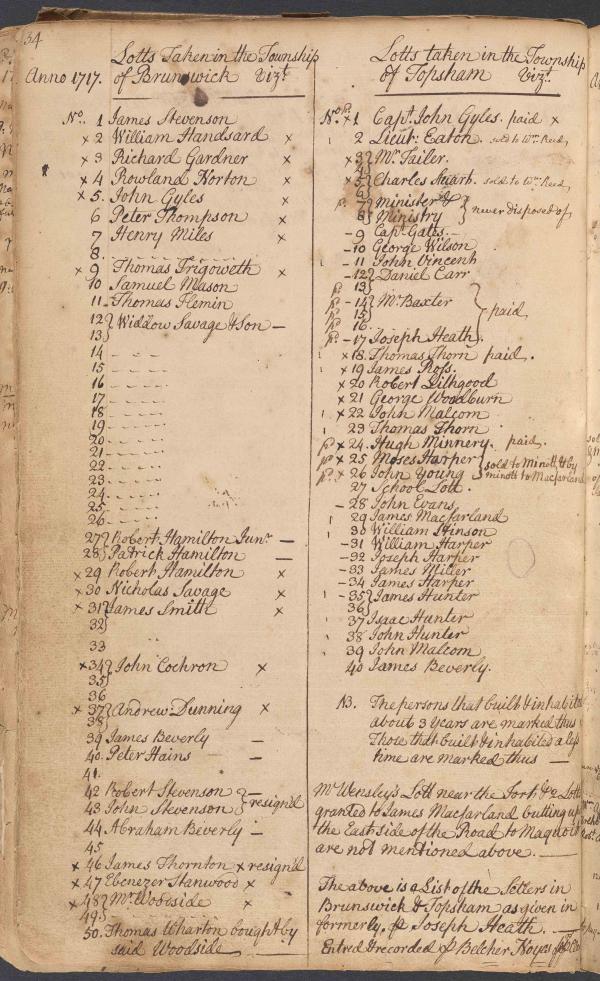 34
Anno 1717.
Lotts Taken in the Township
of Brunswick Vizt.
No. 1 James Stevenson
x 2 William Handsard x
x 3 Richard Gardner x
x 4 Rowland Horton x
x 5. John Gyles x
6 Peter Thompson x
7 Henry Miles x
8.
x 9 Thomas Trigoweth x
10 Samuel Mason
11 Thomas Flemin
12 } Widdow Savage & Son —
13 }
14 - - -
15 - - - -
16 - - - -
17 - - - -
18 - - - -
19 - - - -
20 - - - -
21 - - - -
22 - - - -
23 - - - -
24 - - - -
25 - - - -
26 - - - -
27 } Robert Hamilton Junr. —
28 } Patrick Hamilton —
x 29 Robert Hamilton x
x 30 Nicholas Savage x
x 31 } James Smith x
32 }
33
x 34 } John Cochron x
35 }
36
x 37 } Andrew Dunning x
38 }
39 James Beverly —
40 Peter Hains —
41.
42 Robert Stevenson } resign'd
43 John Stevenson }
44 Abraham Beverly —
45
x 46 James Thornton x resign'd
x 47 Ebenezer Stanwood x
x 48 } Mr. Woodside x
49 }
50. Thomas Wharton bought by
said Woodside
Lotts taken in the Township
Of Topsham Vizt.
No. x 1 Capt. John Gyles. paid x
2 Lieut: Eaton. sold to Wm. Reed
x 3 } Mr. Tailer.
4 }
x 5 } Charles Stuart. sold to Wm. Reed
6 }
7 } Minister &
8 } Ministry } never disposed of
- 9 Capt. Gatts. —
- 10 George Wilson
- 11 John Vincent
- 12 } Daniel Carr
13 }
- 14 } Mr. Baxter
15 } paid
16.
- 17 Joseph Heath.
x 18. Thomas Thorn paid.
x 19 James Ross.
x 20 Robert Lithgood
x 21 George Woodburn
x 22 John Malcom
23 Thomas Thorn
x 24. Hugh Minnery. paid.
x 25 Moses Harper } sold to Minott & by
x 26 John Young } Minott to Macfarland
27 School Lott.
- 28 John Evans
29 James Macfarland
30 William Stinson
- 31 William Harper
- 32 Joseph Harper
- 33 James Miller
- 34 James Harper
- 35 } James Hunter
36 }
37 Isaac Hunter
38 John Hunter
39 John Malcom
40 James Beverly.
NB. The persons that built & inhabited
about 3 Years are marked thus
Those that built & inhabited a less
time are marked thus —
Mr. Wensley's Lott near the Fort &
granted to James Macfarland butting
the East side of the Road to
are not mentioned above.
The above is a List of the Setlers in
Brunswick & Topsham as given in
formerly. Joseph Heath.
Entred & recorded Belcher Noyes